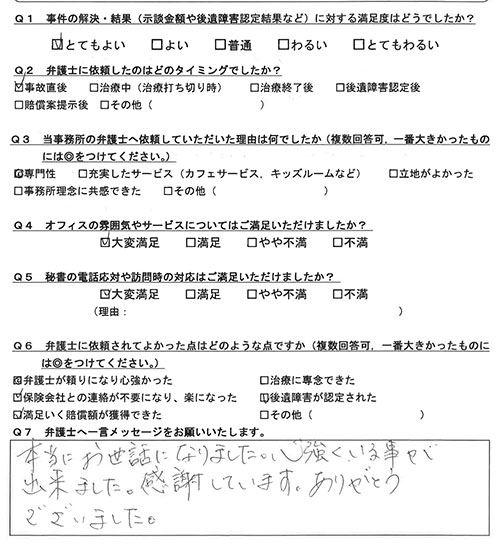 Q1 事件の解決・結果(示談金額や後遺障害認定結果など)に対する満足度はどうでしたか?
☑とてもよい □よい □普通 □わるい □とてもわるい
Q2 弁護士に依頼したのはどのタイミングでしたか?
☑事故直後 □治療中(治療打ち切り時) □治療終了後 □後遺障害認定後
□賠償案提示後 □その他( )
Q3 当事務所の弁護士へ依頼していただいた理由は何でしたか(複数回答可,一番大きかったもの
には◎をつけてください。)
☑専門性 □充実したサービス(カフェサービス,キッズルームなど) □立地がよかった
□事務所理念に共感できた □その他( )
Q4 オフィスの雰囲気やサービスについてはご満足いただけましたか?
☑大変満足 □満足 □やや不満 □不満
Q5 秘書の電話応対や訪問時の対応はご満足いただけましたか?
☑大変満足 □満足 □やや不満 □不満
(理由: )
Q6 弁護士に依頼されてよかった点はどのような点ですか(複数回答可,一番大きかったものに
は◎をつけてください。)
☑弁護士が頼りになり心強かった □治療に専念できた
☑保険会社との連絡が不要になり、楽になった ☑後遺障害が認定された
☑満足いく賠償額が獲得できた □その他( )
Q7 弁護士へ一言メッセージをお願いいたします。
本当にお世話になりました。心強くいる事が
出来ました。感謝しています。ありがとう
ございました。